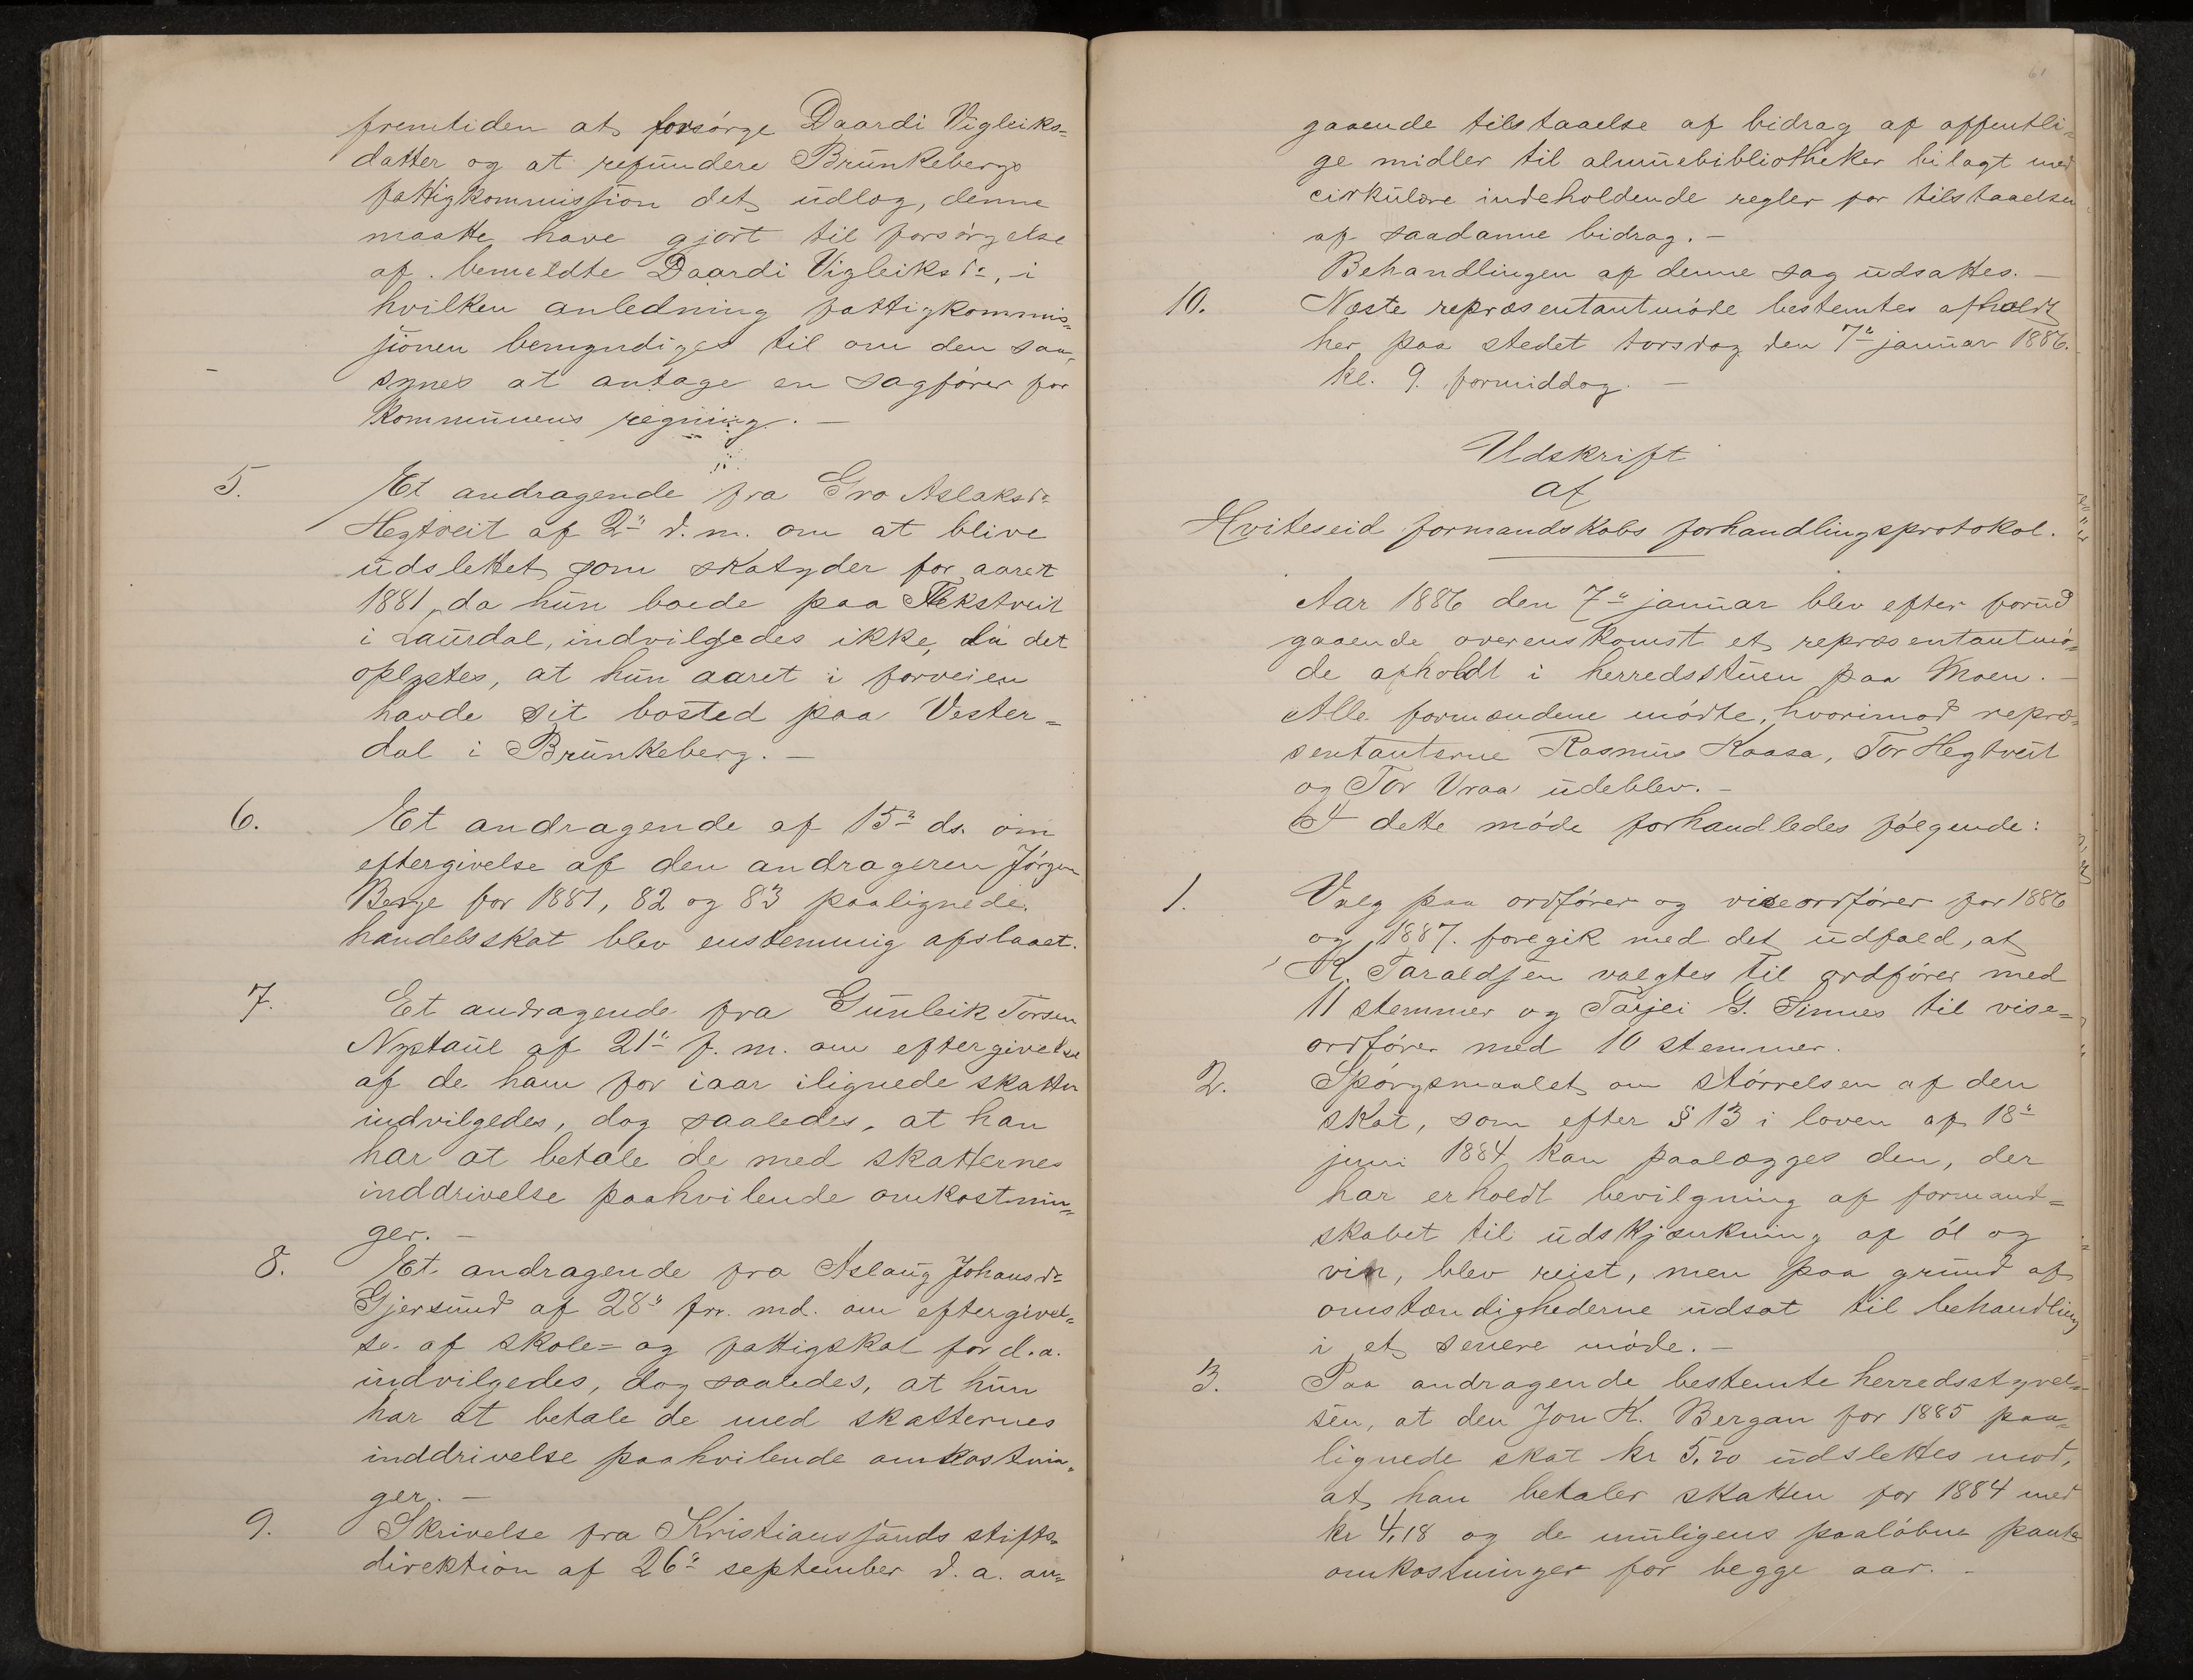 fremtiden at forsörge Daardi Vigleiks=
datter og at refundere Brunkebergs
fattigkommission det udlæg, denne
maatte have gjort til forsörgelse
af bemeldte Daardi Vigleiksdr, i
hvilken anledning fattigkommis=
sionen bemyndiges til om den saa
synes at antage en sagförer for
kommunens regning. —
5. Et andragende fra Gro Aslaksdr
Hegtveit af 2n d.m. om at blive
udslettet som skatyder for aaret
1881, da hun boede paa Flekstveit
i Laurdal, indvilgedes ikke, da det
oplystes, at hun aaret i forveien
havde sit bosted paa Vester=
dal i Brunkeberg. —
6. Et andragende af 15n ds. om
eftergivelse af den andrageren Jörgen
Berge for 1881, 82 og 83 paalignede
handelsskat blev enstemmig afslaaet.
7. Et andragende fra Gunleik Torsen
Nystaul af 21n f.m. om eftergivelse
af de ham for iaar ilignede skatter
indvilgedes, dog saaledes, at han
har at betale de med skatternes
inddrivelse paahvilende omkostnin=
ger. —
8. Et andragende fra Aslaug Johansdr
Gjersund af 28n frr. md. om eftergivel=
se af skole= og fattigskat for d.a.
indvilgedes, dog saaledes, at hun
har at betale de med skatternes
inddrivelse paahvilende omkostnin=
ger. —
9. Skrivelse fra Kristianssands stifts=
direktion af 26n september d.a. an=
61
gaaende tilstaaelse af bidrag af offentli=
ge midler til almuebibliotheker bilagt med
cirkulære indeholdende regler for tilstaaelsen
af saadanne bidrag. —
Behandlingen af denne sag udsattes. —
10. Næste repræsentantmöde bestemtes afholdt
her paa stedet torsdag den 7n januar 1886.
kl. 9. formiddag. —
Udskrift
af
Hviteseid formandskabs forhandlingsprotokol.
Aar 1886 den 7n januar blev efter forud
gaaende overenskomst et repræsentantmö=
de afholdt i herredsstuen paa Moen. —
Alle formændene mödte, hvorimod repræ=
sentanterne Rasmus Kaasa, Tor Hegtveit
og Tor Vraa udeblev. —
I dette möde forhandledes fölgende:
1. Valg paa ordförer og viseordförer for 1886
og 1887. foregik med det udfald, at
K. Taraldsen valgtes til ordförer med
11 stemmer og Tarjei G. Sinnes til vise=
ordförer med 10 stemmer.
2. Spörgsmaalet om störrelsen af den
skat, som efter § 13 i loven af 18n
juni 1884 kan paalægges den, der
har erholdt bevilgning af formand=
skabet til udskjænkning af öl og
vin, blev reist, men paa grund af
omstændighederne udsat til behandling
i et senere möde. —
3. Paa andragende bestemte herredsstyrel=
sen, at den Jon K. Bergan for 1885 paa=
lignede skat kr 5,20 udslettes mod,
at han betaler skatten for 1884 med
kr 4,18 og de muligens paalöbne pante
omkostninger for begge aar. —